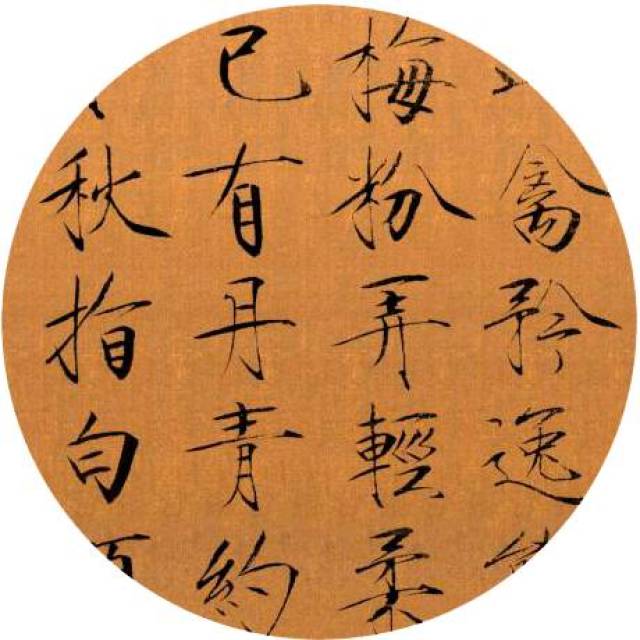 禽矜逸
梅粉弄輕柔
已有丹青約
秋指白